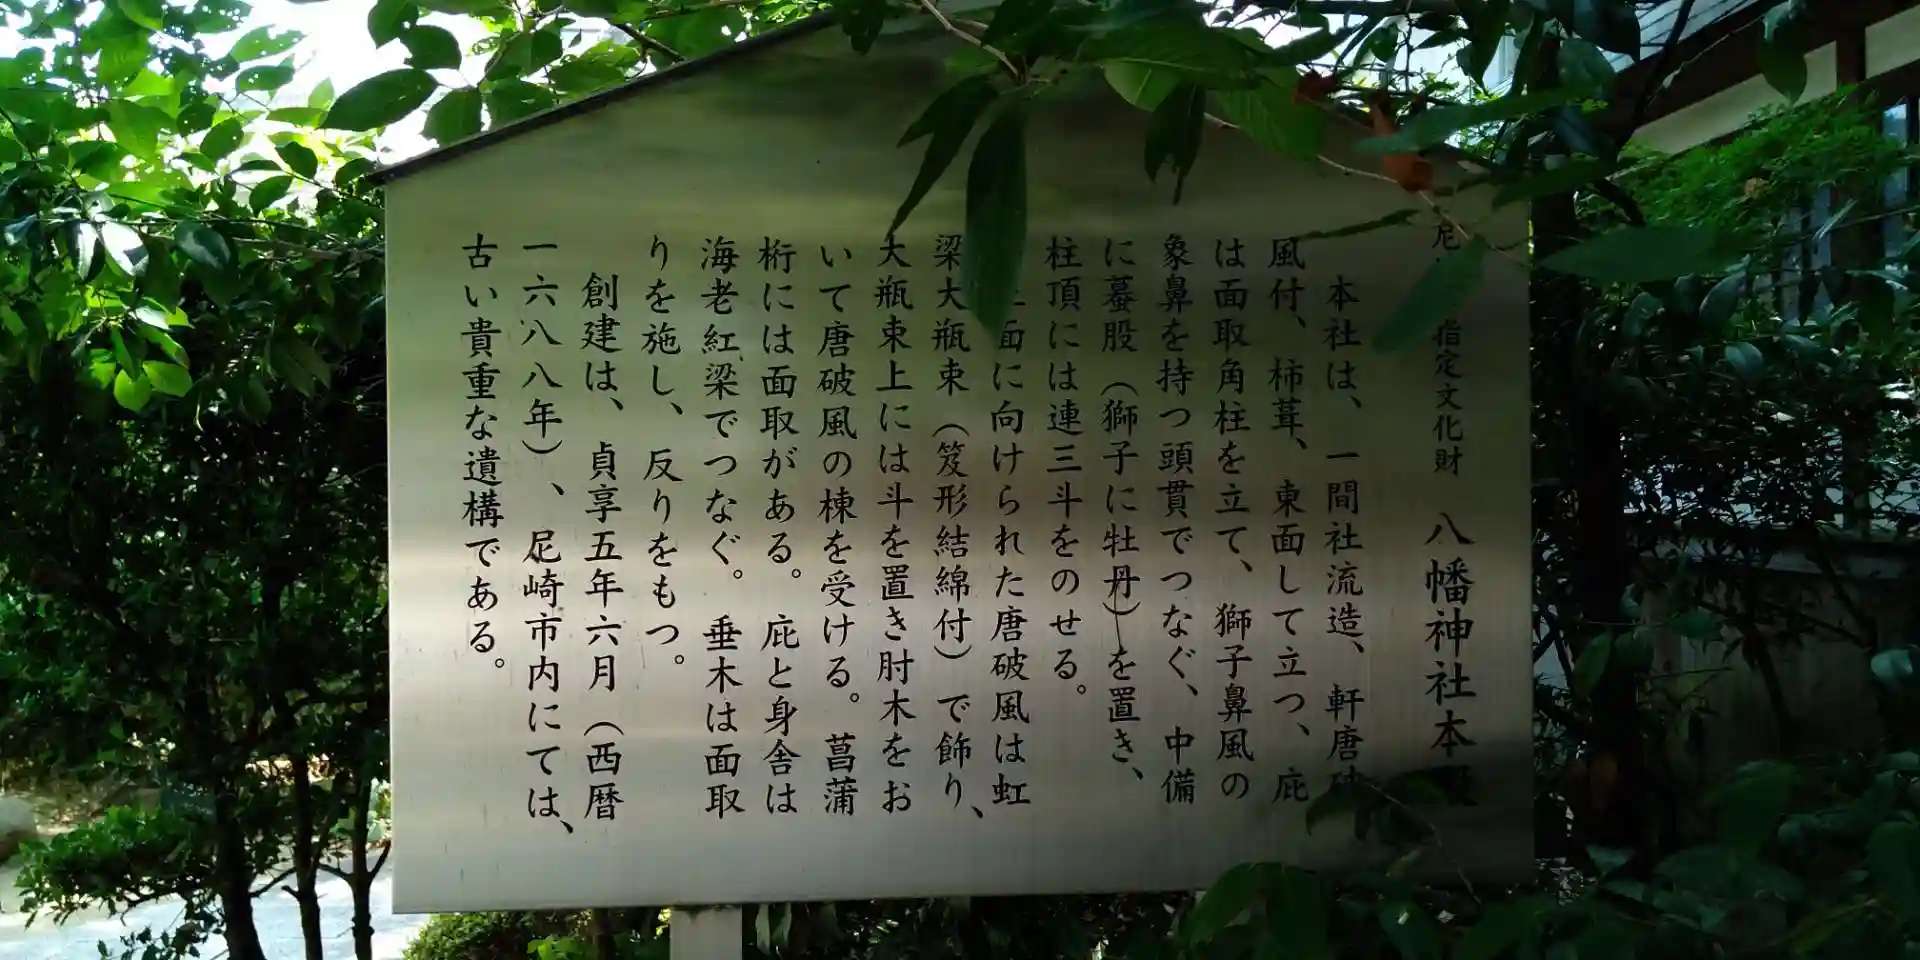 尼 指定文化財 八幡神社本
本社は、一間社流造、軒唐破
風付、柿葺、東面して立つ、庇
は面取角柱を立て、獅子鼻風の
象鼻を持つ頭貫でつなぐ、中備
に蟇股（獅子に牡丹）を置き、
柱頂には連三斗をのせる。
面に向けられた唐破風は虹
梁大瓶束（笈形結綿付）で飾り、
大瓶束上には斗を置き肘木をお
いて唐破風の棟を受ける。菖蒲
桁には面取がある。庇と身舎は
海老紅梁でつなぐ。垂木は面取
りを施し、反りをもつ。
創建は、貞享五年六月（西暦
一六八八年）、尼崎市内にては、
古い貴重な遺構である。